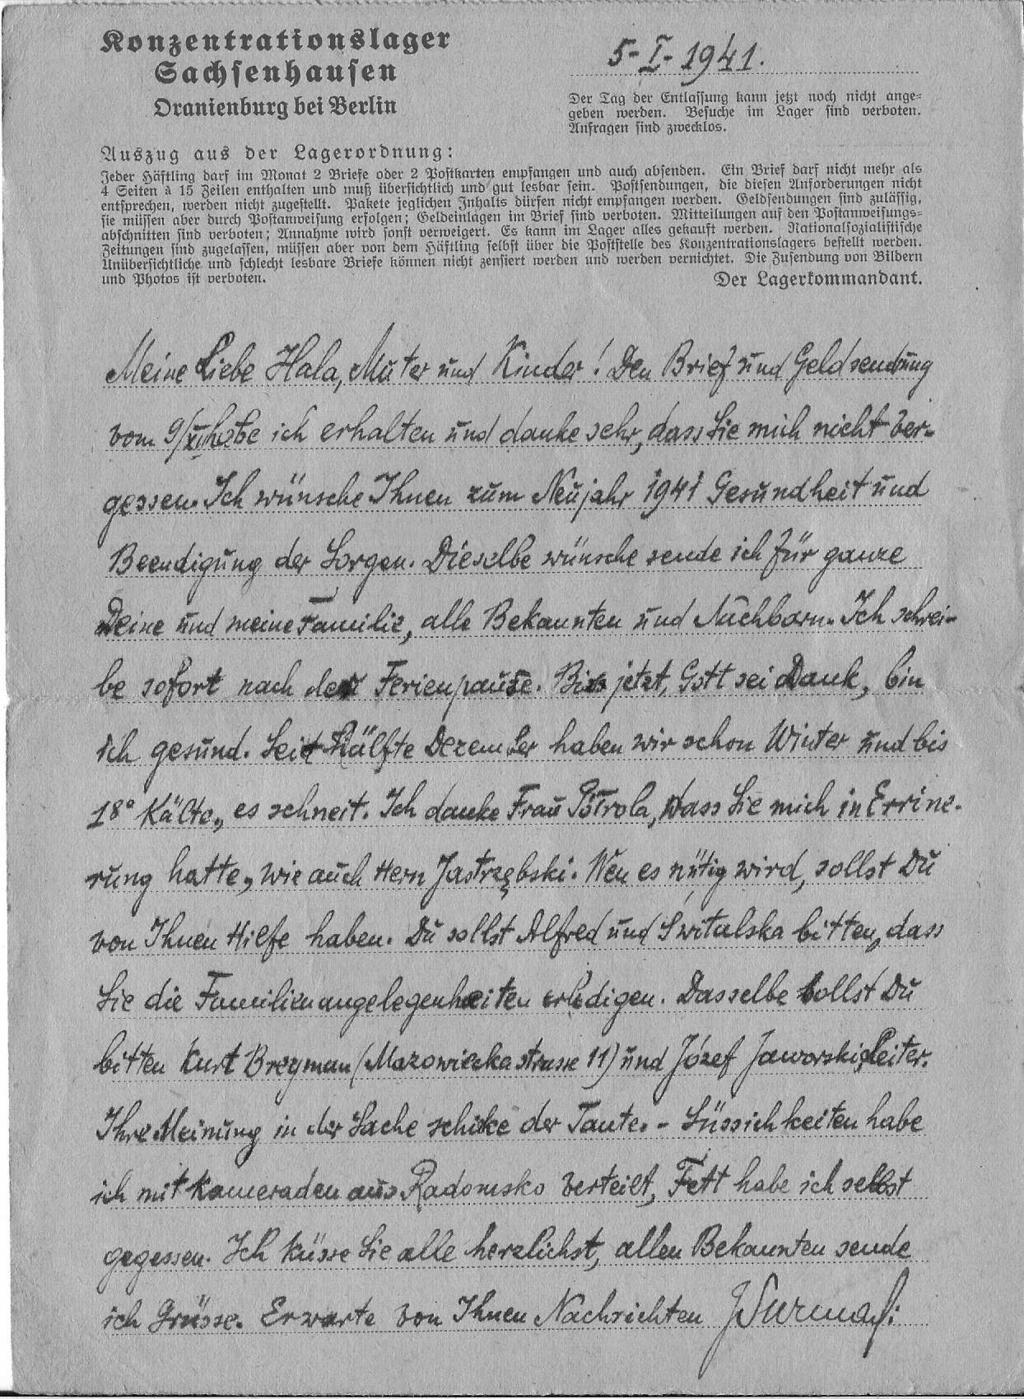 Konzentrationslager
Sachsenhausen
Oranienburg bei Berlin
5-I-1941.
Der Tag der Entlassung kann jetzt noch nicht ange-
geben werden. Besuche im Lager sind verboten.
Anfragen sind zwecklos.
Auszug aus der Lagerordnung:
Jeder Häftling darf im Monat 2 Briefe oder 2 Postkarten empfangen und auch absenden. Ein Brief darf nicht mehr als
4 Seiten à 15 Zeilen enthalten und muß übersichtlich und gut lesbar sein. Postsendungen, die diesen Anforderungen nicht
entsprechen, werden nicht zugestellt. Pakete jeglichen Inhalts dürfen nicht empfangen werden. Geldsendungen sind zulässig,
sie müssen aber durch Postanweisung erfolgen; Geldeinlagen im Brief sind verboten. Mitteilungen auf den Postanweisungs-
abschnitten sind verboten; Annahme wird sonst verweigert. Es kann im Lager alles gekauft werden. Nationalsozialistische
Zeitungen sind zugelassen, müssen aber von dem Häftling selbst über die Poststelle des Konzentrationslagers bestellt werden.
Unübersichtliche und schlecht lesbare Briefe können nicht zensiert werden und werden vernichtet. Die Zusendung von Bildern
und Photos ist verboten. Der Lagerkommandant.
Meine Liebe Hala, Muter und Kinder! Den Brief und Geldsendung
vom habe ich erhalten und danke sehr, dass Sie mich nicht ver-
gessen. Ich wünsche Ihnen zum Neujahr 1941 Gesundheit und
Beendigung der Sorgen. Dieselbe wünsche sende ich für ganze
Deine und meine Familie, alle Bekannten und Nachbarn. Ich schrei-
be sofort nach der Ferienpause. Bis jetzt, Gott sei Dank, bin
ich gesund. Seit Hälfte Dezember haben wir schon Winter und bis
18° Kälte, es schneit. Ich danke Frau dass Sie mich in Errine-
rung hatte, wie auch Hern Jastrzębski. Wen es nütig wird, sollst Du
von Ihnen Hilfe haben. Du sollst Alfred und Świtalska bitten, dass
Sie die Familienangelegenheiten erledigen. Dasselbe sollst Du
bitten Kurt Bregman (Mazowieckastrasse 11) und Józef Jaworski, Leiter.
Ihre Meinung in der Sache schike der Tante. - Süssichkeiten habe
ich mit Kameraden aus Radomsko verteilt, Fett habe ich selbst
gegessen. Ich küsse Sie alle herzlichst, allen Bekannten sende
ich Grüsse. Erwarte von Ihnen Nachrichten